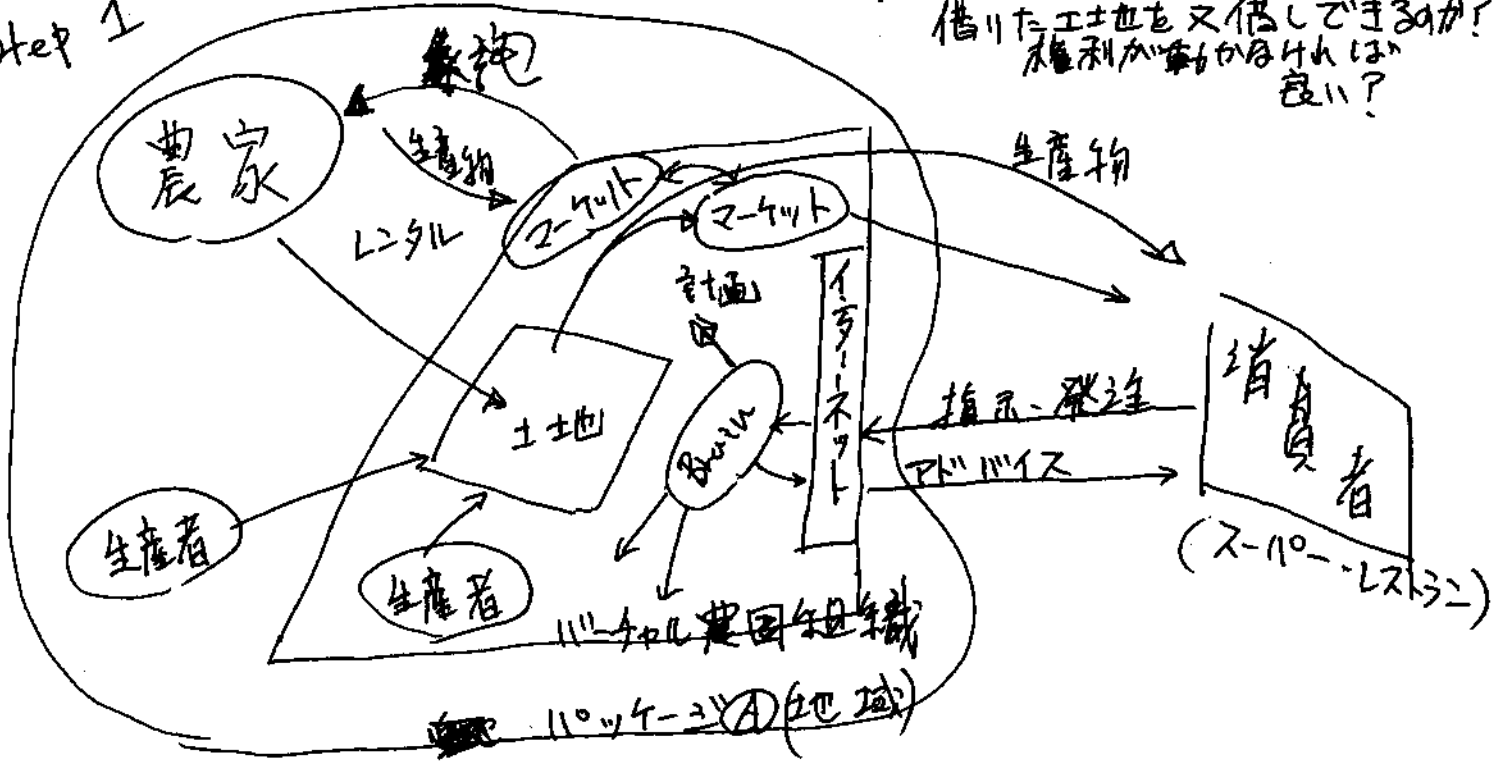 step 1
借りた土地を又借しできるのか?
権利が動かなければ
良い?
農家
生産物
レンタル
マーケット
マーケット
生産物
計画
インターネット
土地
Brain
指示、発注
アドバイス
消費者
(スーパー・レストラン)
生産者
生産者
バーチャル農園組織
パッケージA(地域)